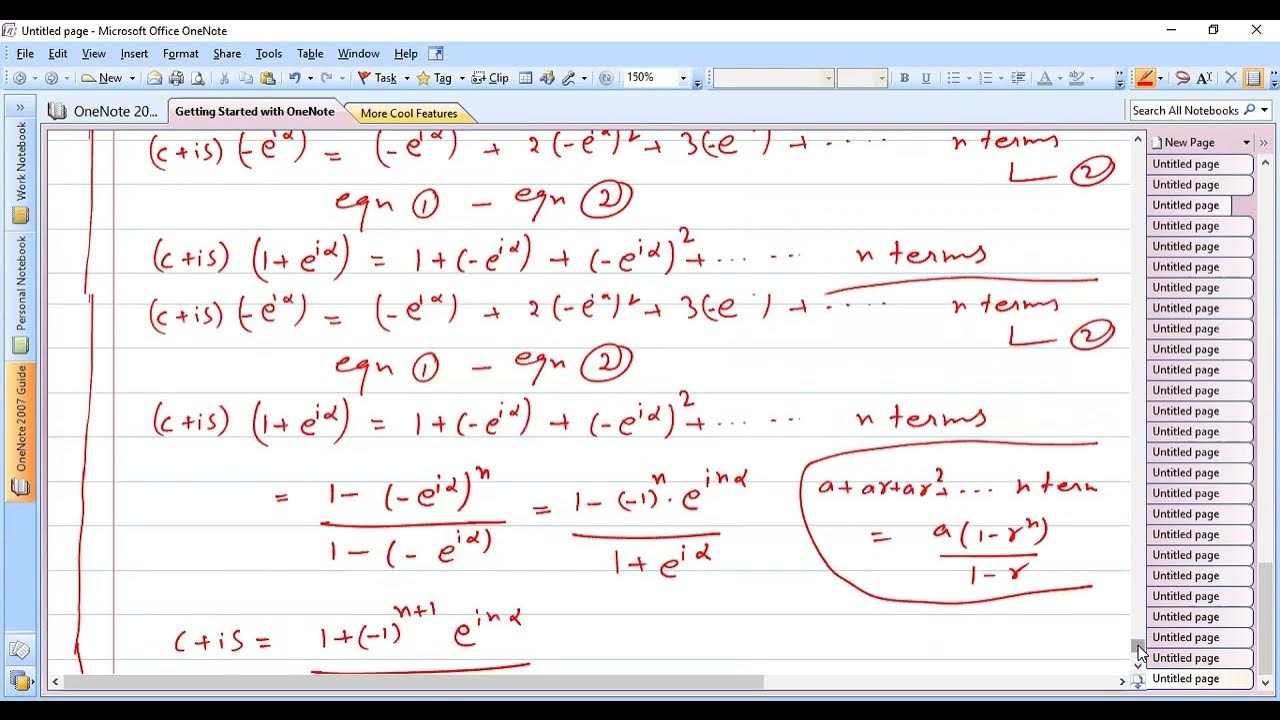 Untitled page - Microsoft Office OneNote
File Edit View Insert Format Share Tools Table Window Help
New Task Tag Clip 150% B I U
OneNote 20... Getting Started with OneNote More Cool Features Search All Notebooks
Work Notebook
Personal Notebook
OneNote 2007 Guide
New Page
Untitled page
Untitled page
Untitled page
Untitled page
Untitled page
Untitled page
Untitled page
Untitled page
Untitled page
Untitled page
Untitled page
Untitled page
Untitled page
Untitled page
Untitled page
Untitled page
Untitled page
Untitled page
Untitled page
Untitled page
Untitled page
Untitled page
Untitled page
Untitled page
Untitled page
Untitled page
(c+is) (-e^{iα}) = (-e^{iα}) + 2(-e^{iα})^2 + 3(-e ) + .... n terms
②
eqn ① - eqn ②
(c+is) (1+e^{iα}) = 1+(-e^{iα}) + (-e^{iα})^2 + ..... n terms
(c+is) (-e^{iα}) = (-e^{iα}) + 2(-e^{iα})^2 + 3(-e ) + .... n terms
②
eqn ① - eqn ②
(c+is) (1+e^{iα}) = 1+(-e^{iα}) + (-e^{iα})^2 + ..... n terms
= 1-(-e^{iα})^n / 1-(-e^{iα}) = 1-(-1)^n . e^{inα} / 1+e^{iα}
a+ar+ar^2+... n term
= a(1-r^n) / 1-r
c+is = 1+(-1)^{n+1} e^{inα}